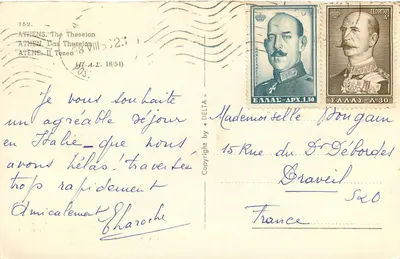 152.
ATHENS. The Theseion
ATHEN. Das Theseion
ATÈNE. Il Teseo
(Π.Δ.Σ. 18/54)
ΕΛΛΑΣ-ΔΡΧ.1.50
ΕΛΛΑΣ-Λ.30
Je vous souhaite
un agréable séjour
en Italie_ que nous
avons hélas! traversée
trop rapidement
Amicalement
Copyright by • DELTA •
Mademoiselle Bongain
15 Rue du Dr Débordes
Draveil
S&O
France